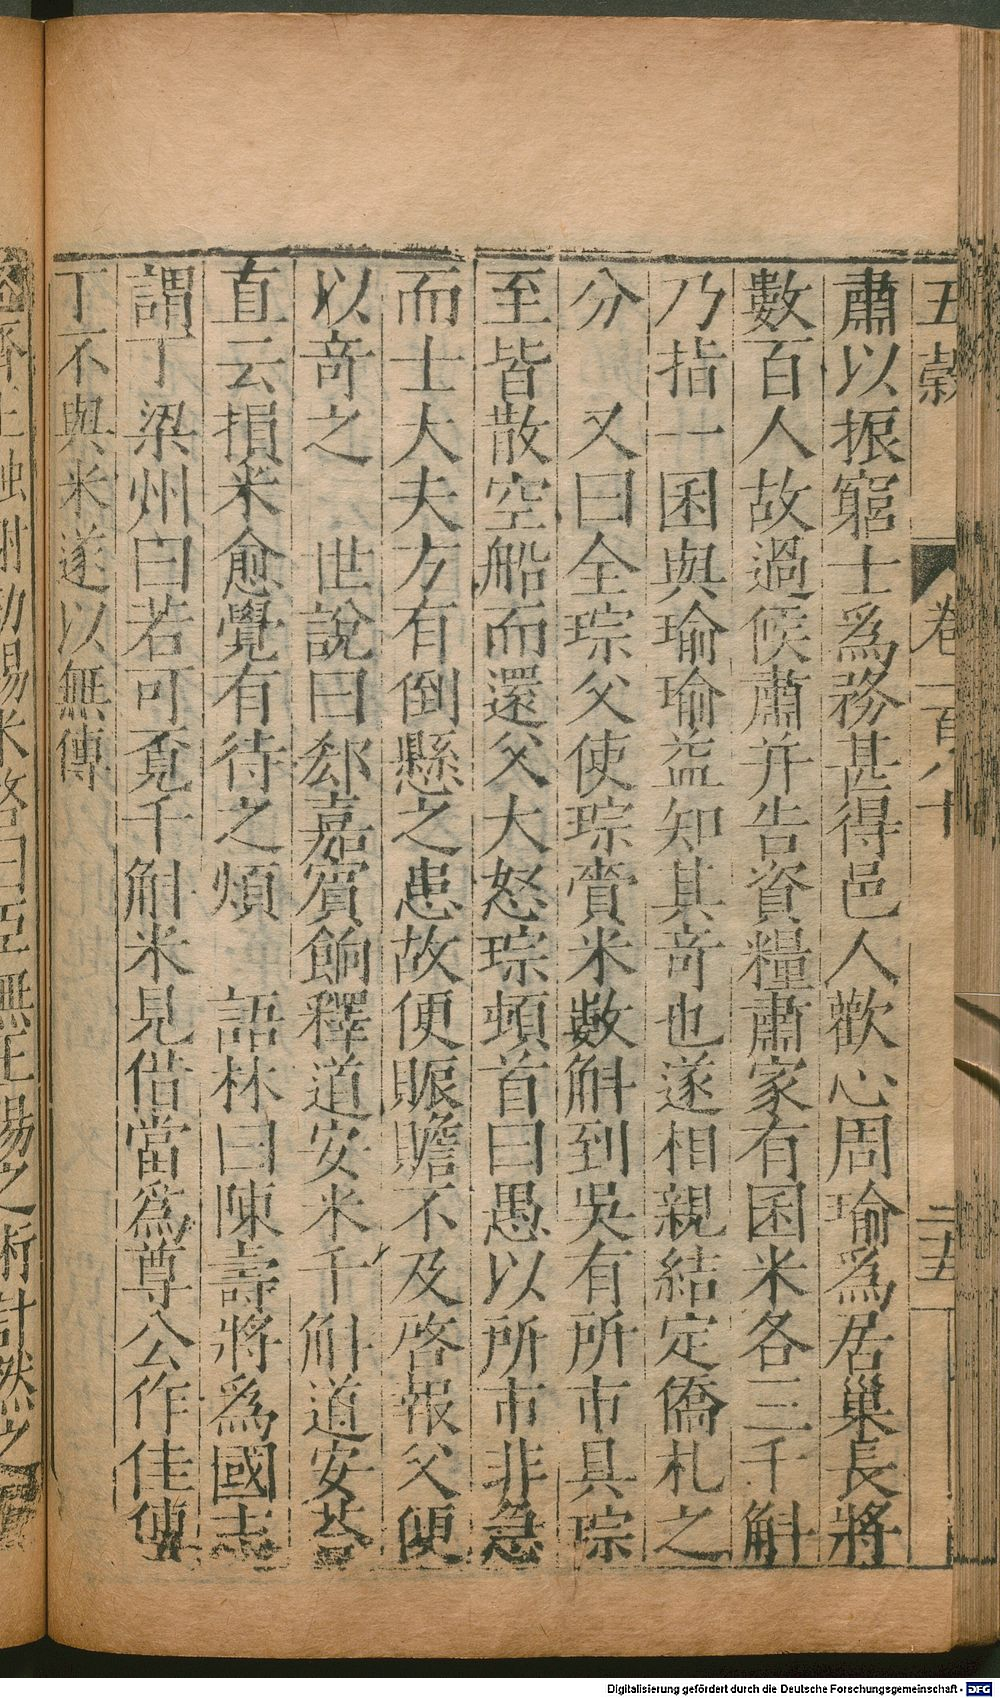 五穀 卷一百八十 二十五
肅以振窮士爲務甚得邑人歡心周瑜爲居巢長將
數百人故過候肅并告資糧肅家有囷米各三千斛
乃指一囷與瑜瑜益知其奇也遂相親結定僑札之
分 又曰全琮父使琮賫米數斛到吳有所市具琮
至皆散空船而還父大怒琮頓首曰愚以所市非急
而士大夫方有倒懸之患故便賑贍不及啓報父便
以奇之 世說曰郄嘉賓餉釋道安米千斛道安荅
直云損米愈覺有待之煩 語林曰陳壽將爲國志
謂丁梁州曰若可覔千斛米見借當爲尊公作佳傳
丁不與米遂以無傳
Digitalisierung gefördert durch die Deutsche Forschungsgemeinschaft - DFG